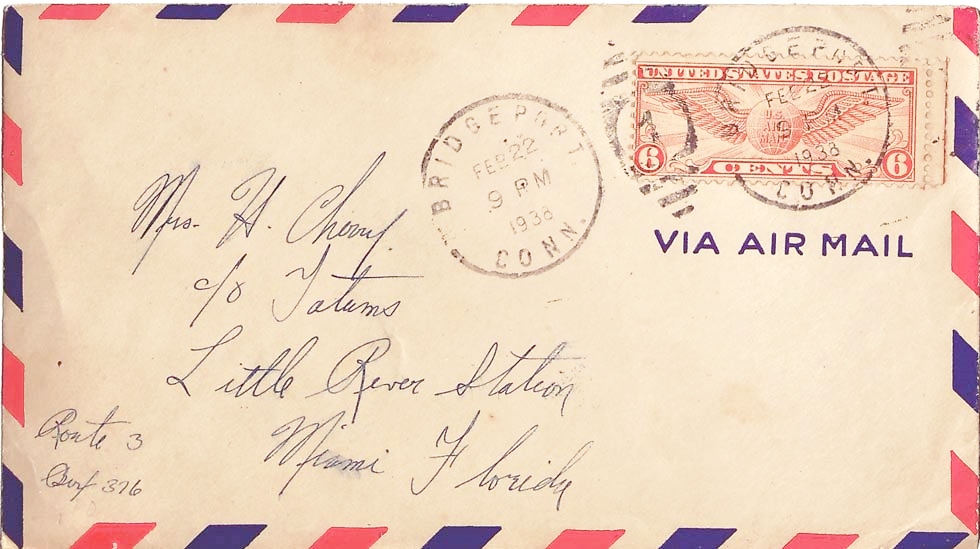 BRIDGEPORT.
FEB 22
9 PM
1938
CONN.
UNITED STATES POSTAGE
U.S.
AIR
MAIL
6 CENTS 6
BRIDGEPORT.
FEB 22
9 PM
1938
CONN.
VIA AIR MAIL
Mrs. H. Cherry.
c/o Tatums
Little River Station
Miami Florida
Route 3
Box 376